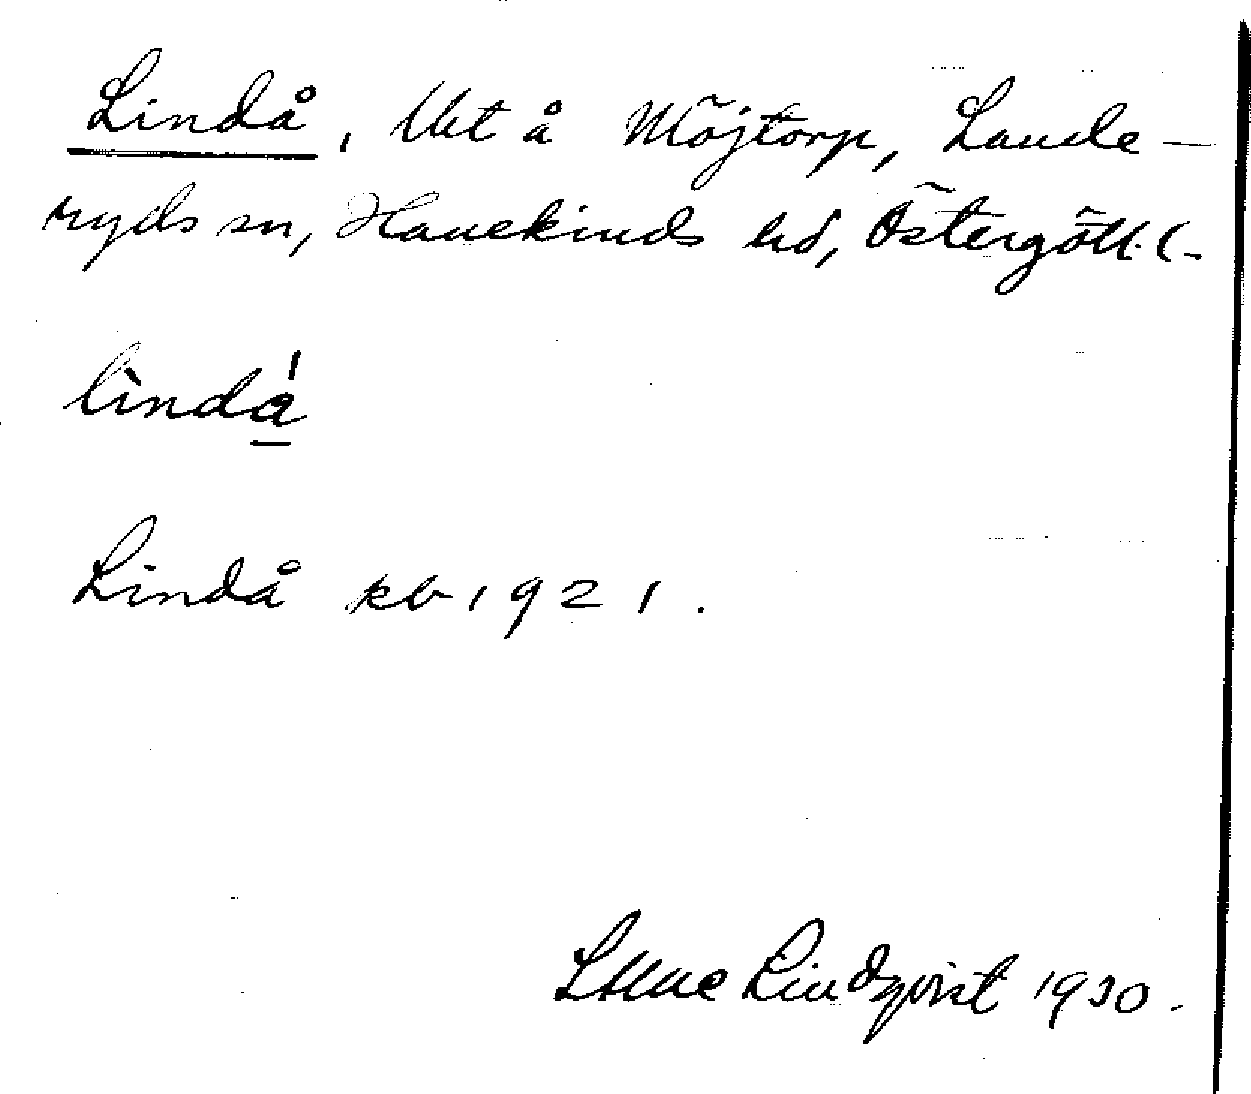 Lindå, Utt å Möjtorp, Lande-
ryds sn, Hanekinds hd, Östergötl. l.
lìndá
Lindå kb 1921.
Sune Lindqvist 1930.